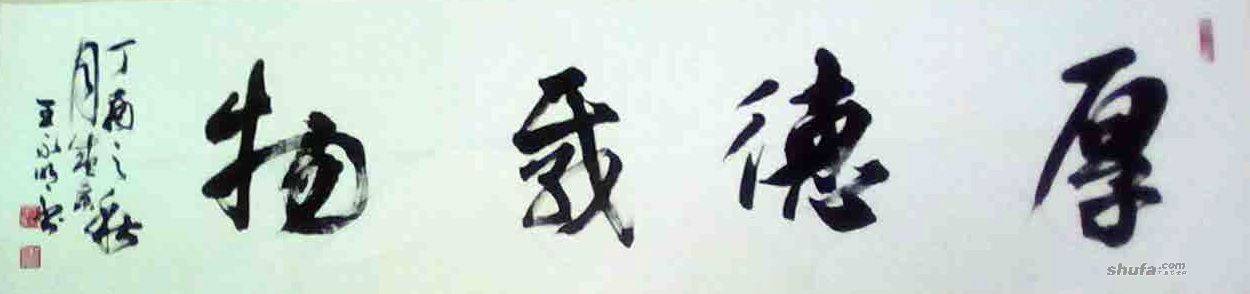 厚德载物
丁酉之秋
月
王永明书
shufa.com